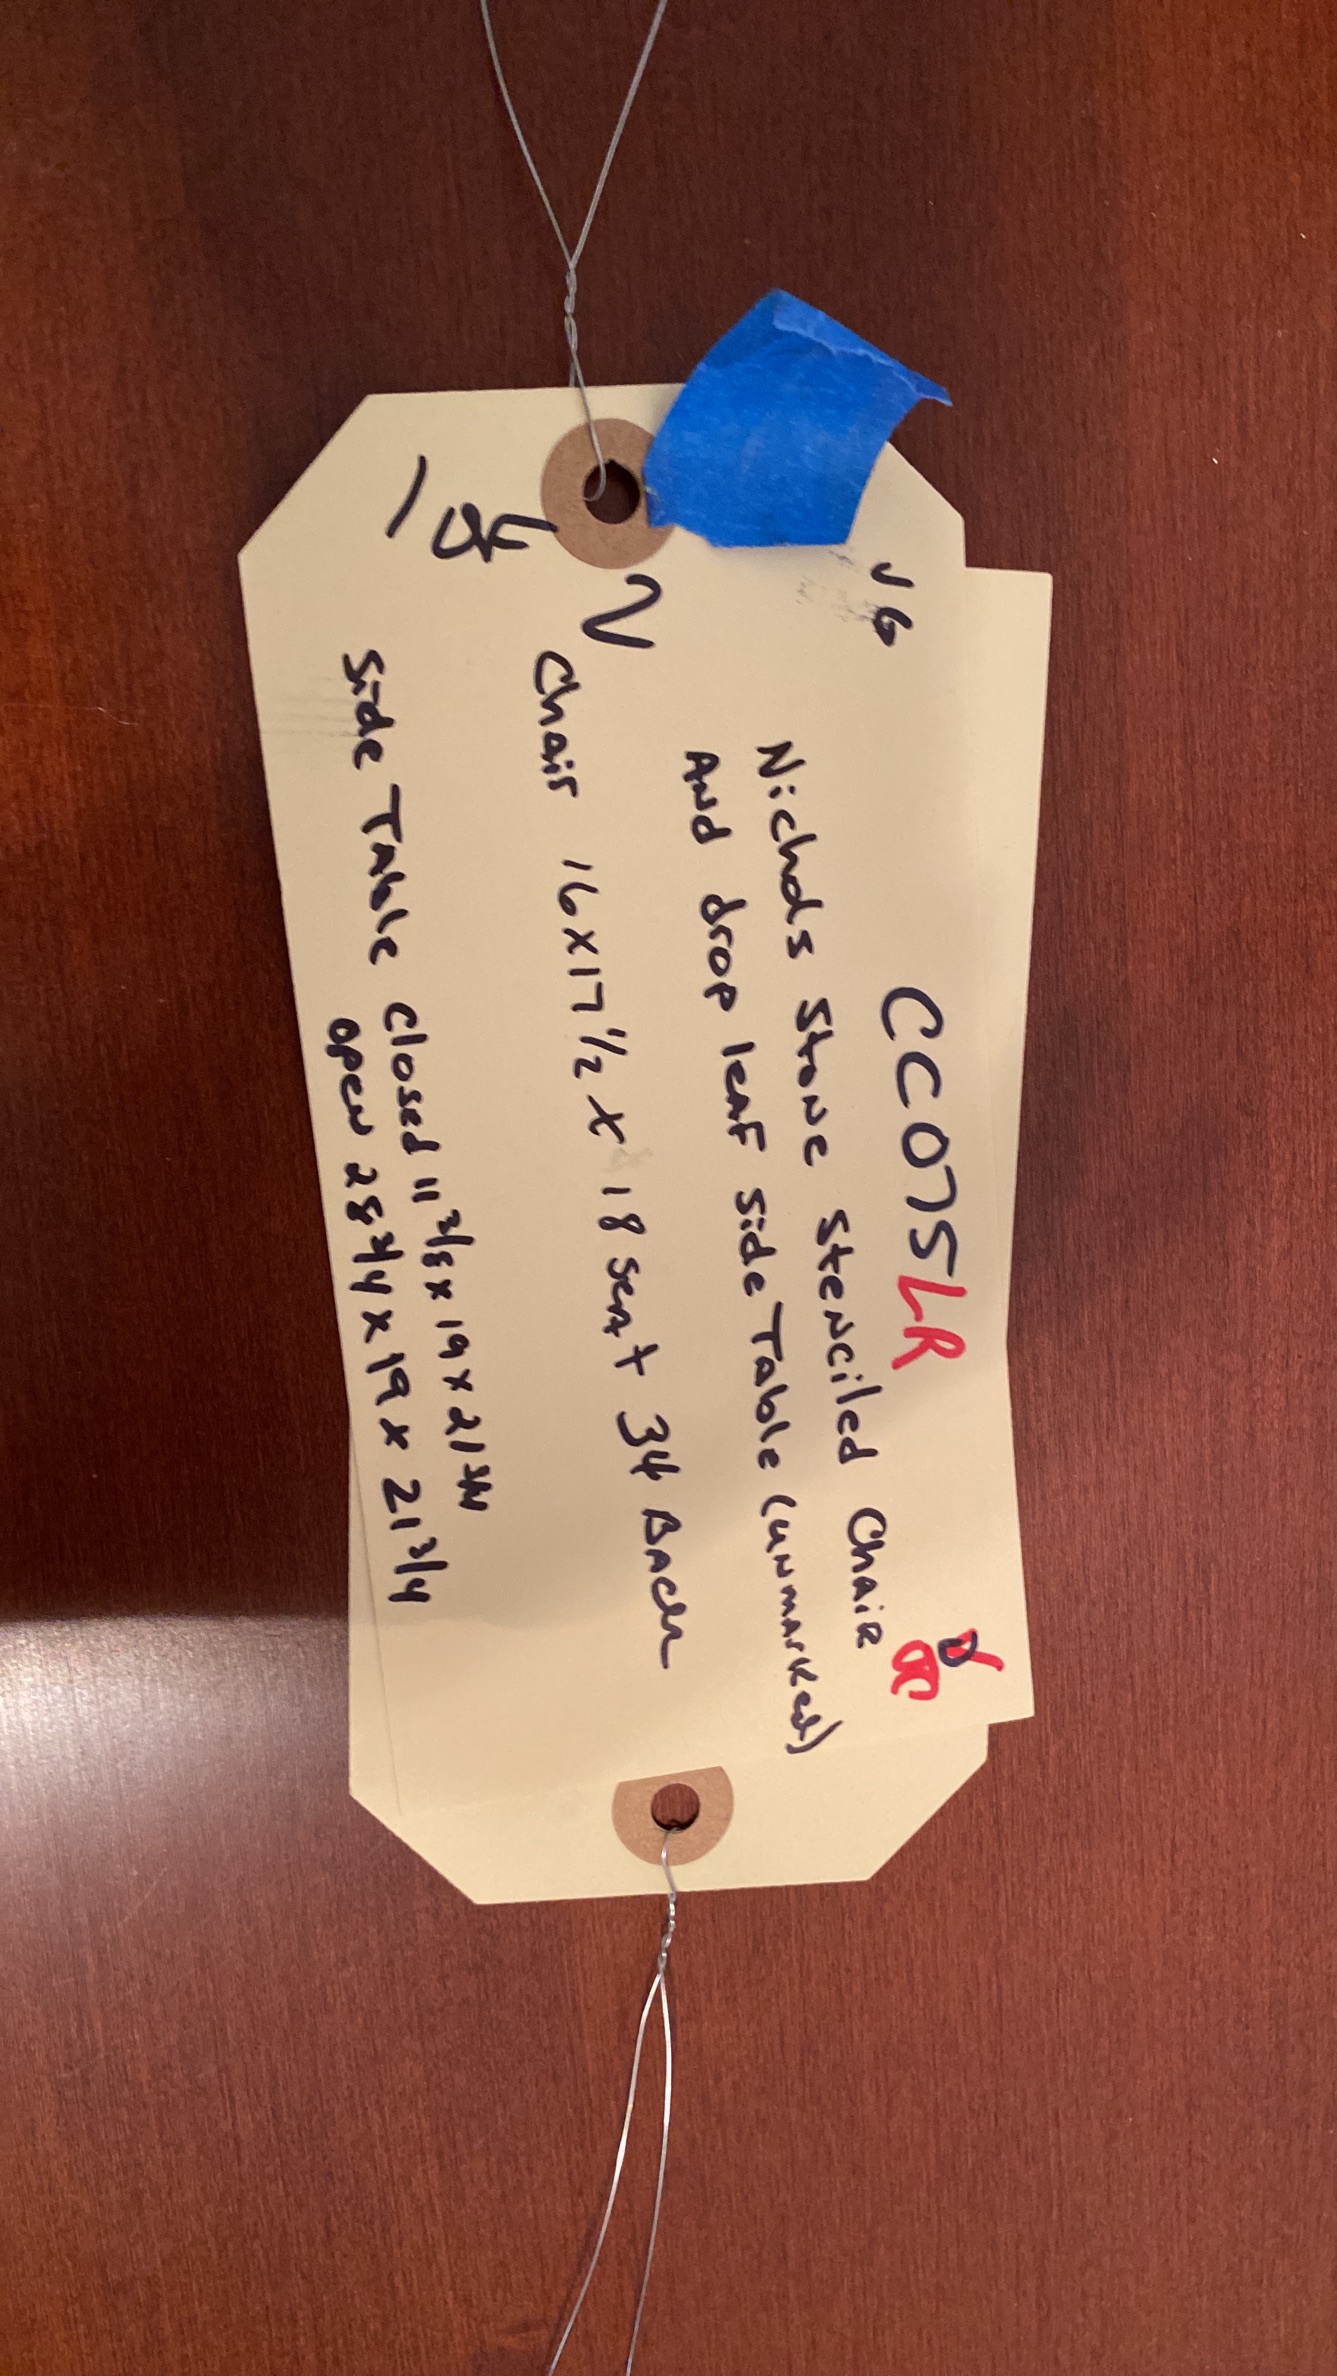 CC075LR
JG
Nichols Stone Stenciled Chair
And drop leaf side Table (unmarked)
1 of 2
Chair 16x17 1/2 x 18 seat 34 Back
Side Table closed 11 3/8 x 19 x 21 3/4
open 28 3/4 x 19 x 21 3/4